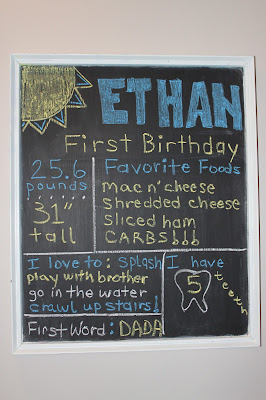 ETHAN
First Birthday
25.6
pounds
31"
tall
Favorite Foods
mac n' cheese
shredded cheese
sliced ham
CARBS!!!
I love to: splash
play with brother
go in the water
crawl upstairs!
I have
5
teeth
First Word: DADA